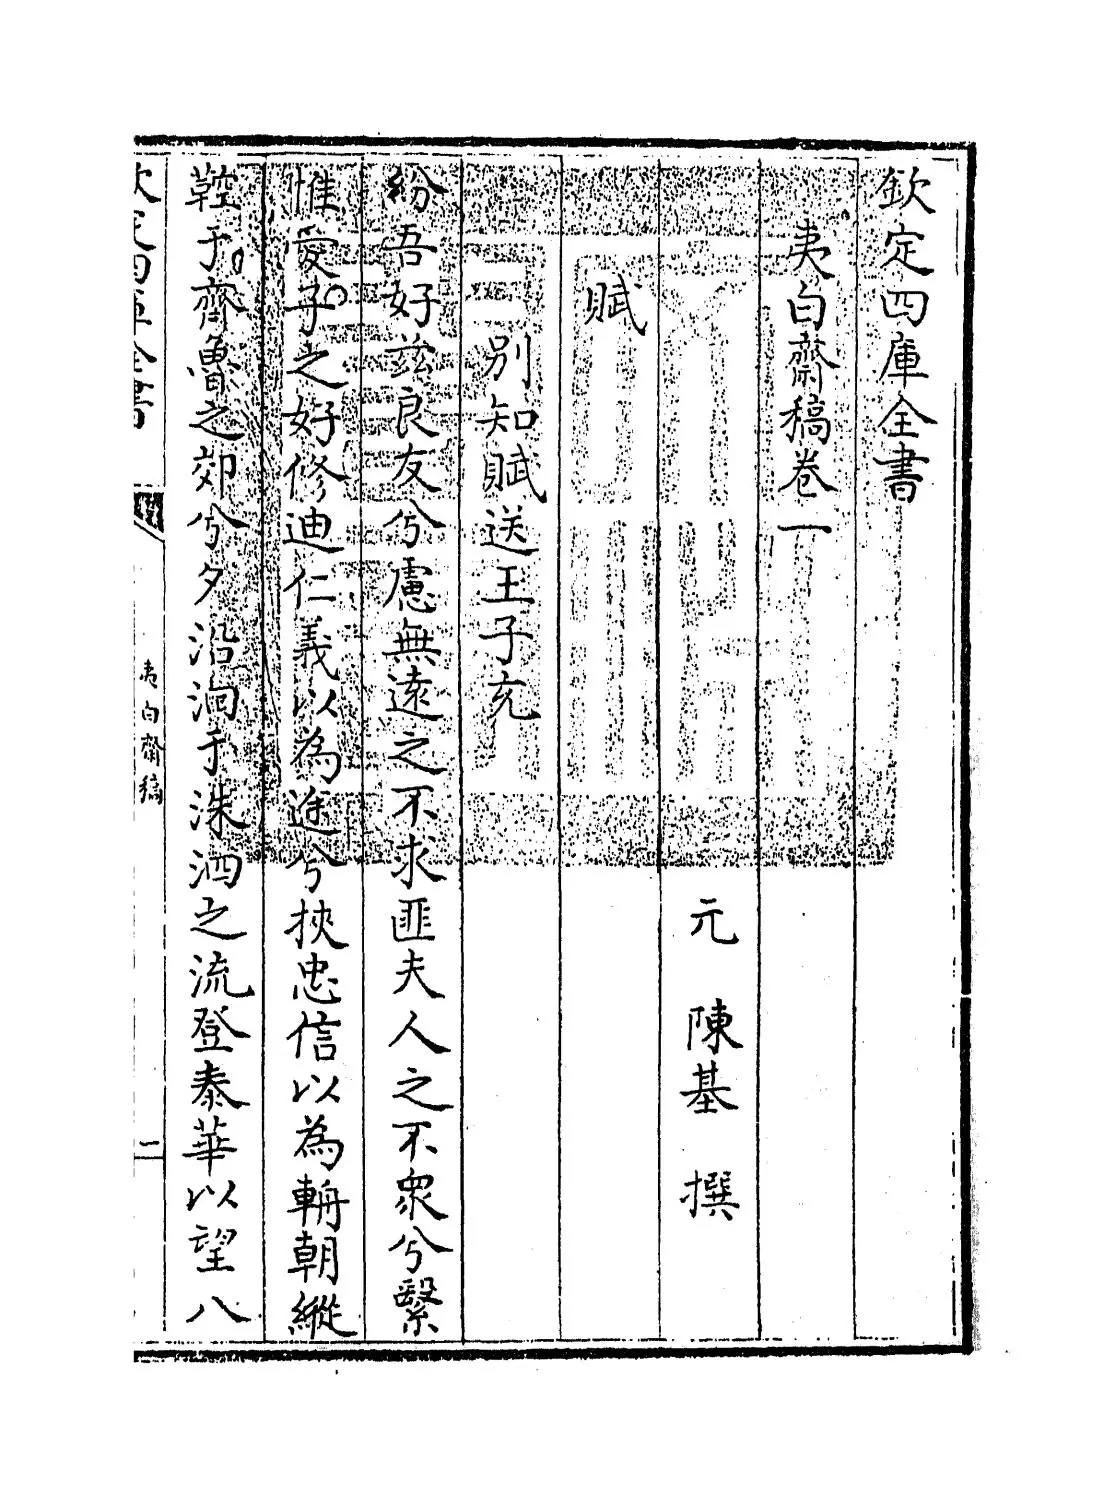 欽定四庫全書
夷白齋稿卷一
元 陳基 撰
賦
別知賦送王子充
紛吾好兹良友兮慮無遠之不求匪夫人之不衆兮繄
惟愛子之好修迪仁義以為途兮挾忠信以為輈朝縱
鞚于齊魯之郊兮夕沿洄于洙泗之流登泰華以望八
欽定四庫全書
夷白齋稿
二